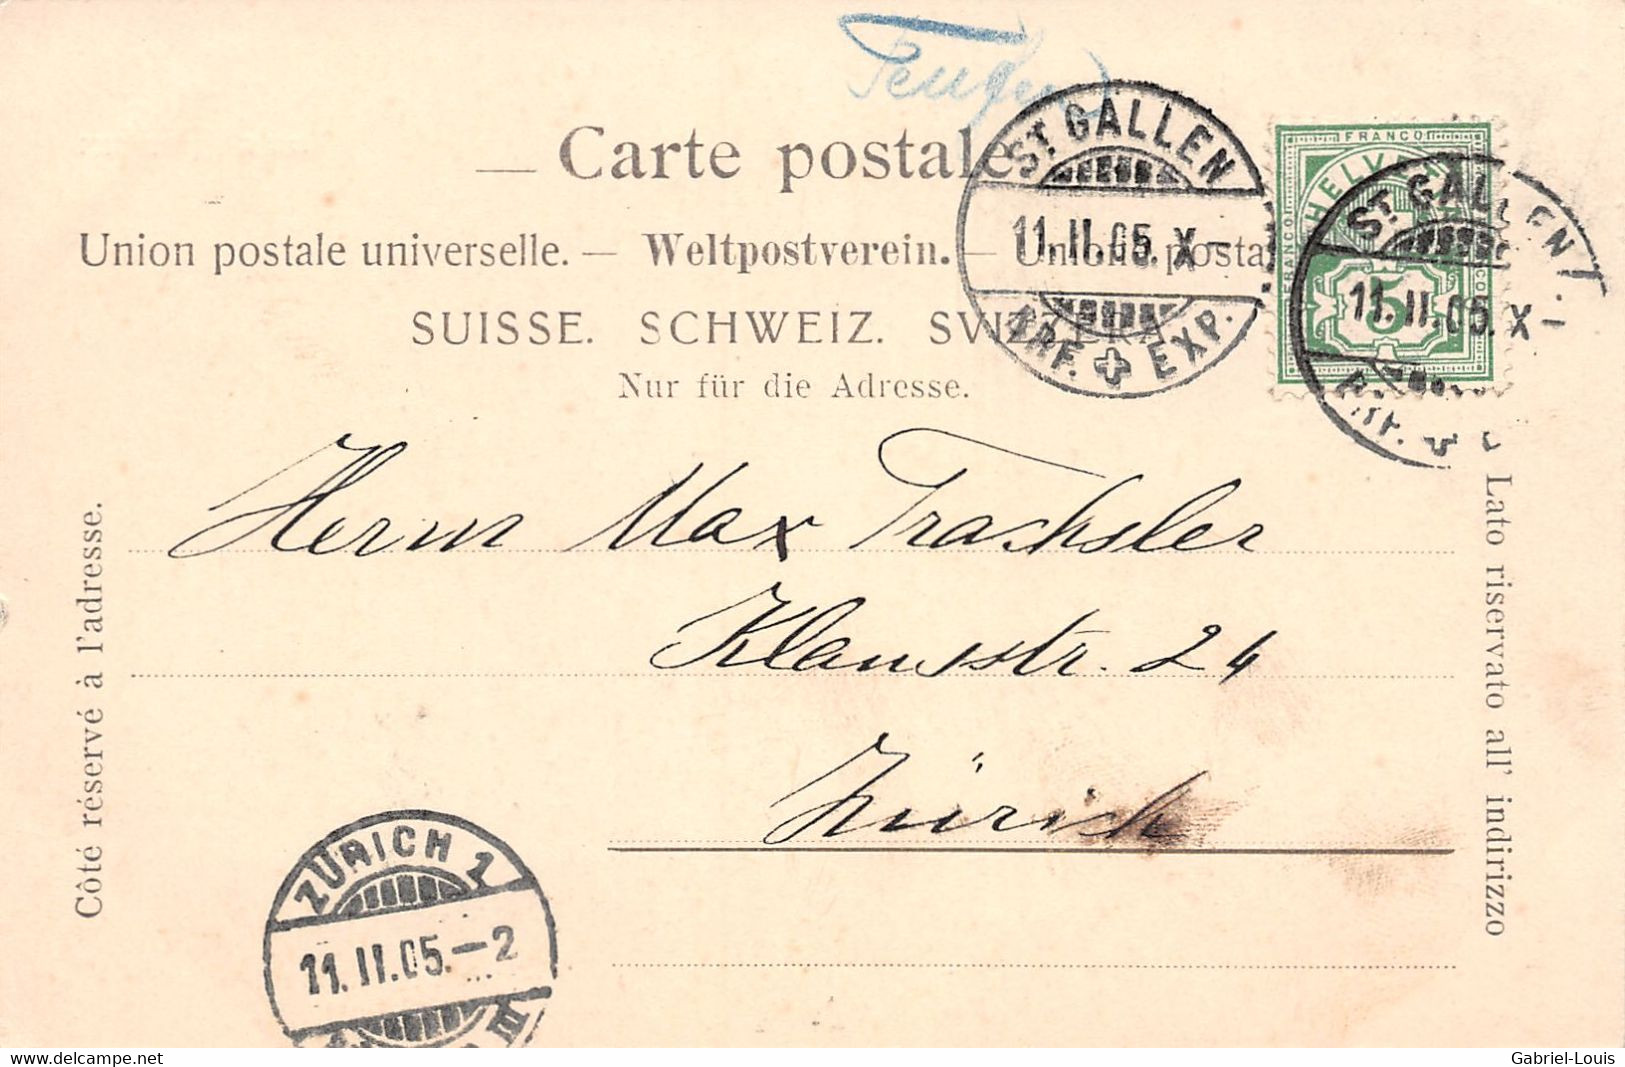 Teufen
— Carte postale
Union postale universelle. — Weltpostverein. — Unione posta
SUISSE. SCHWEIZ. SVIZZERA
Nur für die Adresse.
ST. GALLEN
11.II.05. X –
BRF. EXP.
FRANCO
HELVE
FRANCO
5
ST. GALLEN
11.II.05. X –
Herrn Max Trachsler
Klausstr. 24
Zürich
Côté réservé à l'adresse.
Lato riservato all' indirizzo
ZÜRICH 1
11.II.05.–2
III
www.delcampe.net
Gabriel-Louis